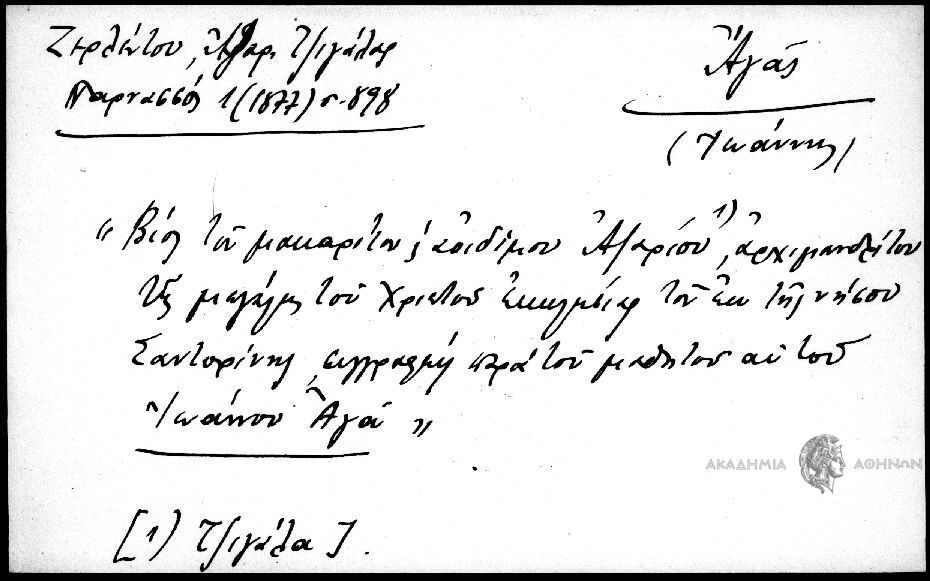 Ζερλέντου, Ἀζαρ. Τζιγάλας
Παρνασσός 1 (1877) σ. 898
Ἀγᾶς
(Ἰωάννης)
"Βίος τοῦ μακαρίτου ς ἀοιδίμου Ἀζαρίου 1), ἀρχιμανδρίτου
τῆς μεγάλης τοῦ Χριστοῦ ἐκκλησίας τοῦ ἐκ τῆς νήσου
Σαντορίνης, συγγραφείς παρὰ τοῦ μαθητοῦ αὐτοῦ
Ἰωάννου Ἀγᾶ"
ΑΚΑΔΗΜΙΑ ΑΘΗΝΩΝ
[1) Τζιγάλα].